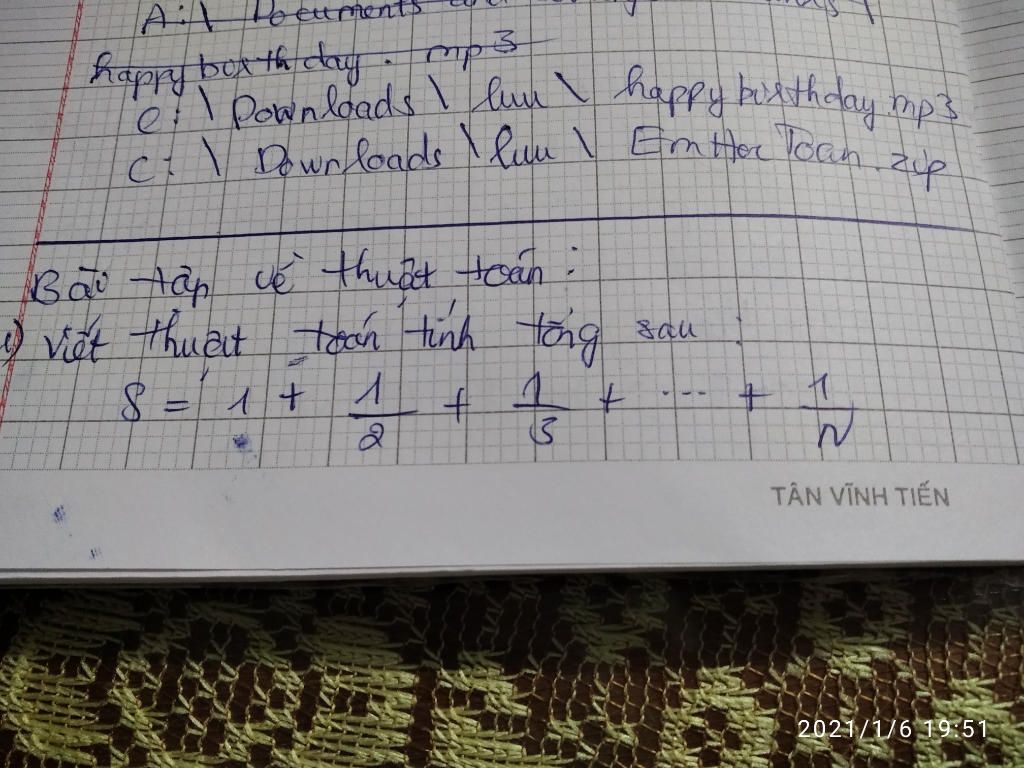 A:\ Documents and
happy borth day. mp3
e:\ Downloads \ lưu \ happy borthday.mp3
C:\ Downloads \ lưu \ Em Học Toan .zip
Bài tập về thuật toán:
1) Viết thuật toán tính tổng sau:
S = 1 + 1/2 + 1/3 + ... + 1/N
TÂN VĨNH TIẾN
2021/1/6 19:51